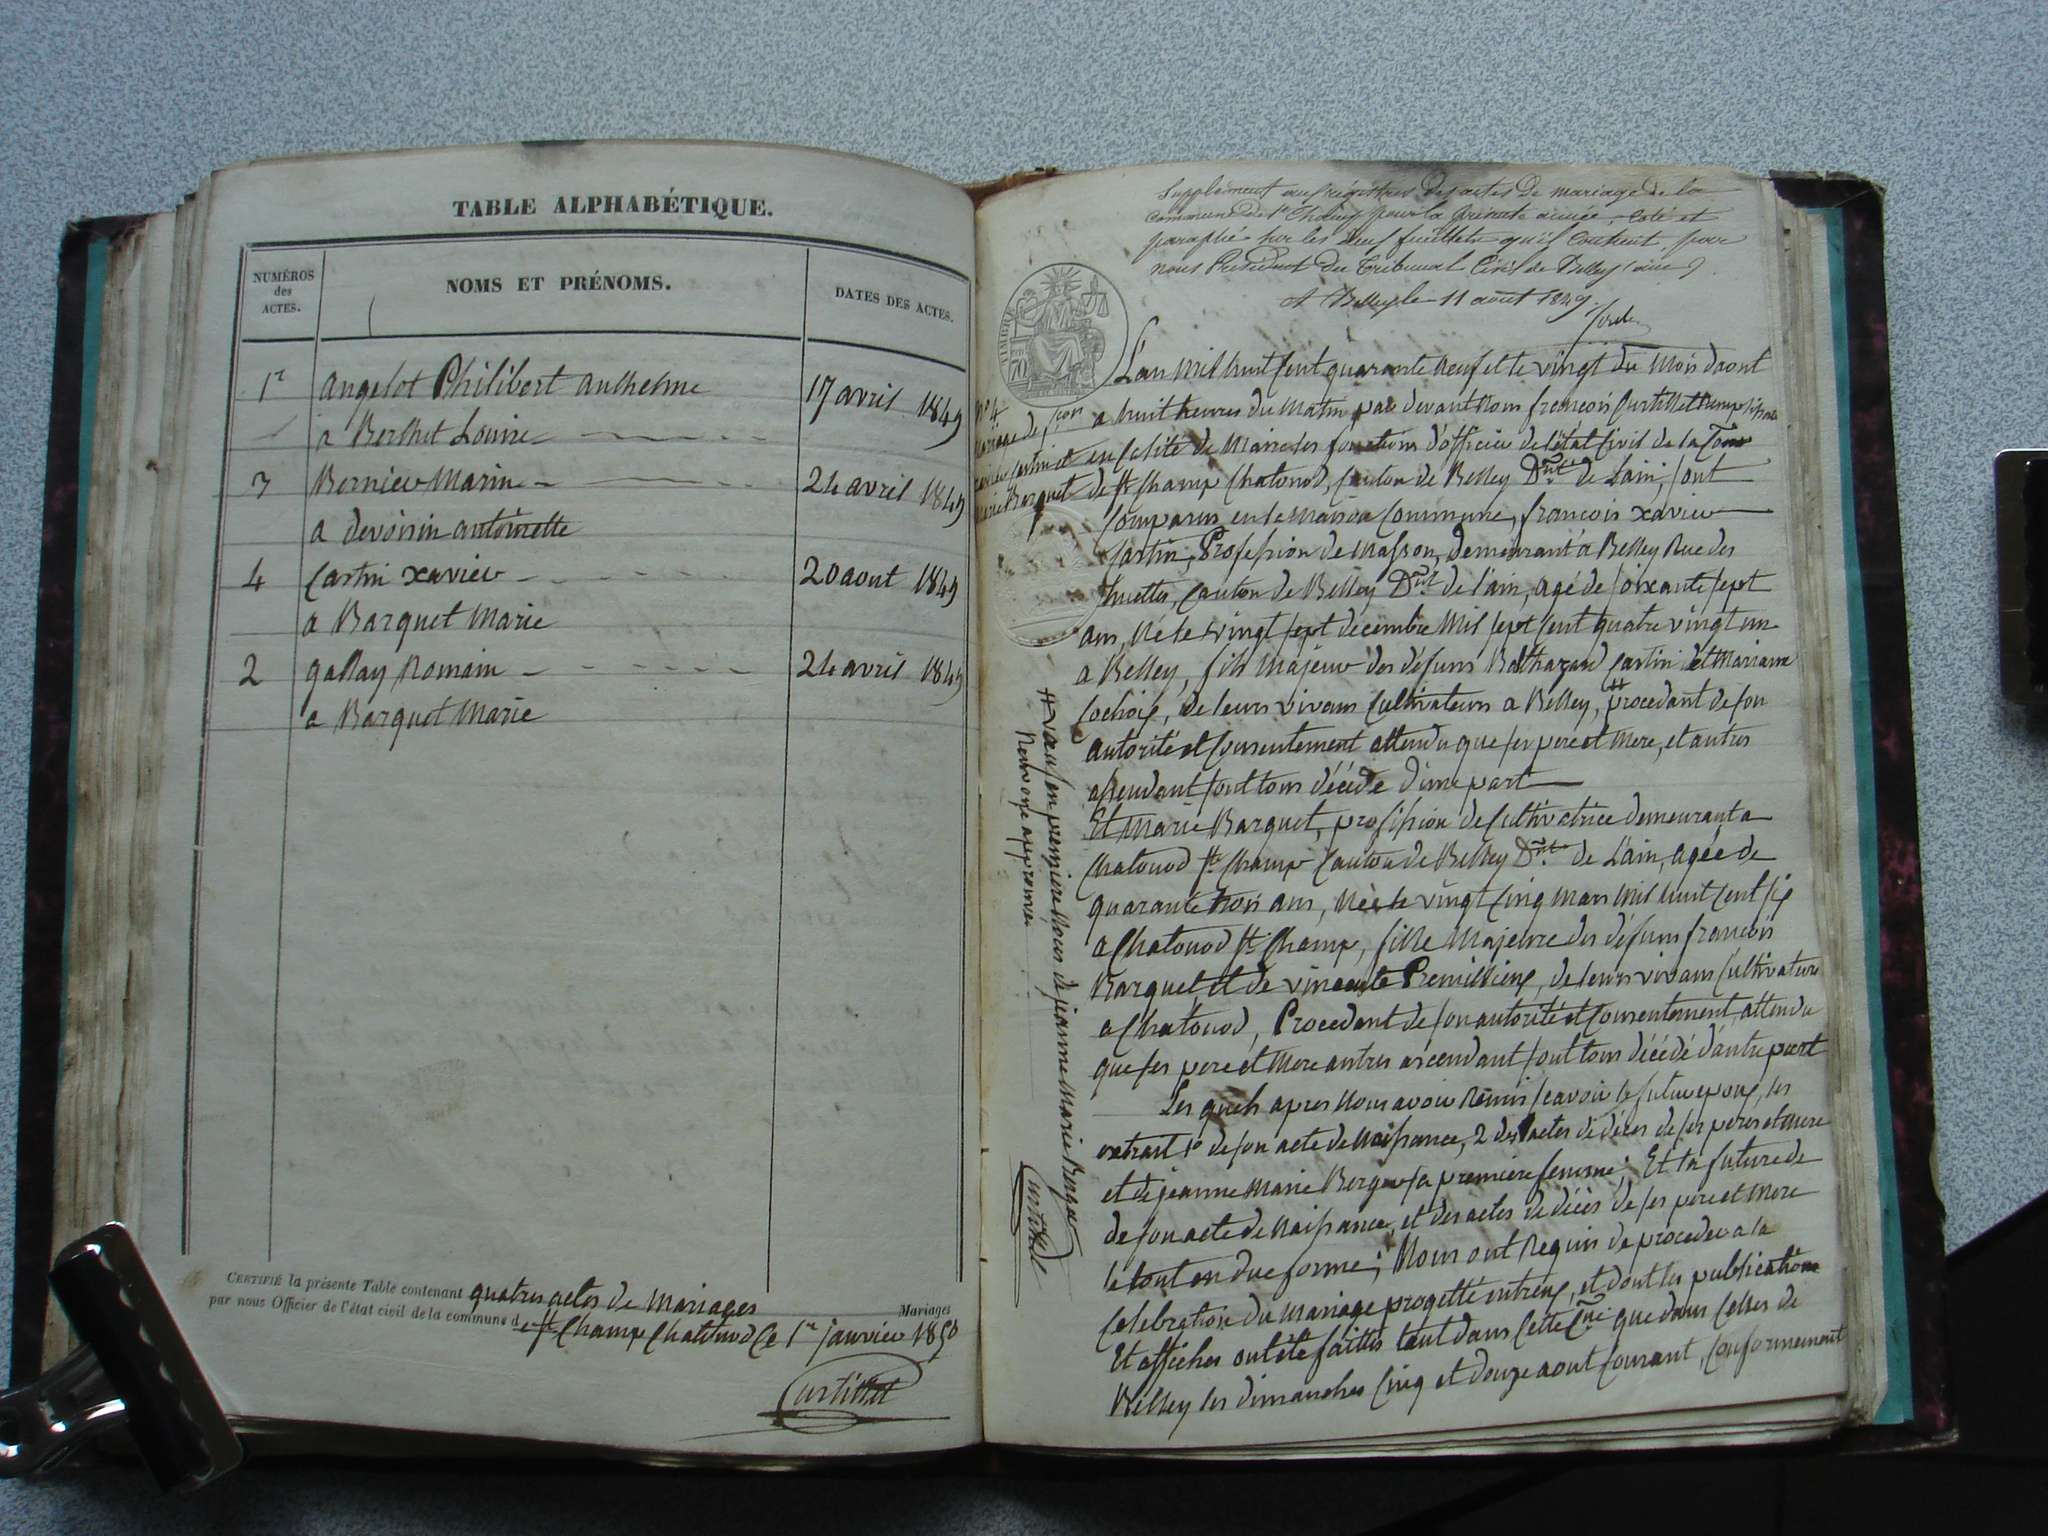 TABLE ALPHABÉTIQUE.
NUMÉROS
des
ACTES.
NOMS ET PRÉNOMS.
DATES DES ACTES.
1er angelot Philibert anthelme 17 avril 1849
a Berthet Louise
3 Bernier Marin 24 avril 1849
a devoisin antoinette
4 Cartin xavier 20 aout 1849
a Barquet Marie
2 gallay Romain 24 avril 1849
a Barquet Marie
CERTIFIÉ la présente Table contenant quatres actes de Mariages Mariages
par nous Officier de l'état civil de la commune de st Champ Chatonod Ce 1er janvier 1850
Curtillet
Supplément aux régistres des actes de mariage de la
commune de St Champ pour la présente année, coté et
paraphé sur les feuillets qu'il contient, par
nous Président du Tribunal Civil de Belley (ain).
A Belley le 11 août 1849.
TIMBRE
70
L'an Mil huit Cent quarante Neuf et le vingt du Mois daout
a huit heures du Matin par devant Nous francois Curtillet
en Calité de Maire les fonctions d'officier de l'état Civil de la Com
de St Champ Chatonod, Canton de Belley Dmt de Lain, sont
Comparus en la Maison Commune, francois xavier
Cartin, Profession de Masson, demeurant a Belley Rue des
huettes, Canton de Belley Dmt de l'ain, agé de soixante sept
ans, Né le vingt sept decembre Mil sept Cent quatre vingt un
a Belley, fils Majeur des défuns Balthazard Cartin et Mariane
Cochoix, de leurs vivans Cultivateurs a Belley, # procedant de son
autorité et Consentement attendu que ses pere et Mere, et autres
assendant sont tous décédé d'une part
Et Marie Barquet, profession de Cultivatrice demeurant a
Chatonod St Champ Canton de Belley Dmt de L'ain, agée de
quarante trois ans, Née le vingt Cinq Mars Mil huit Cent six
a Chatonod St Champ, fille Majeure des défuns francois
Barquet et de vincente Premillieux, de leurs vivans Cultivateurs
a Chatonod, Procedant de son autorité et Consentement, attendu
que ses pere et Mere autres ascendant sont tous décédé d'autre part
Les quels apres Nous avoir Remis scavoir le futur epoux, les
extrait 1º de son acte de Naissance, 2 des actes de décès de ses peres et Mere
et de jeanne Marie Bergat sa premiere femme; Et la future de
de son acte de Naissance, et des actes de décès de ses pere et Mere
le tout en due forme; Nous ont Requis de proceder a la
Celebration du Mariage progetté entreux, et dont les publications
Et affiches ont été faittes tant dans Cette Cne que dans Celles de
Belley les dimanches Cinq et douze aout Courant, Conformement
Nº 4
Mariage de fcois
xavier Cartin et
Marie Barquet
# veuf en premiere Noces de jeanne Marie Bergat
Renvoye approuvé
Curtillet